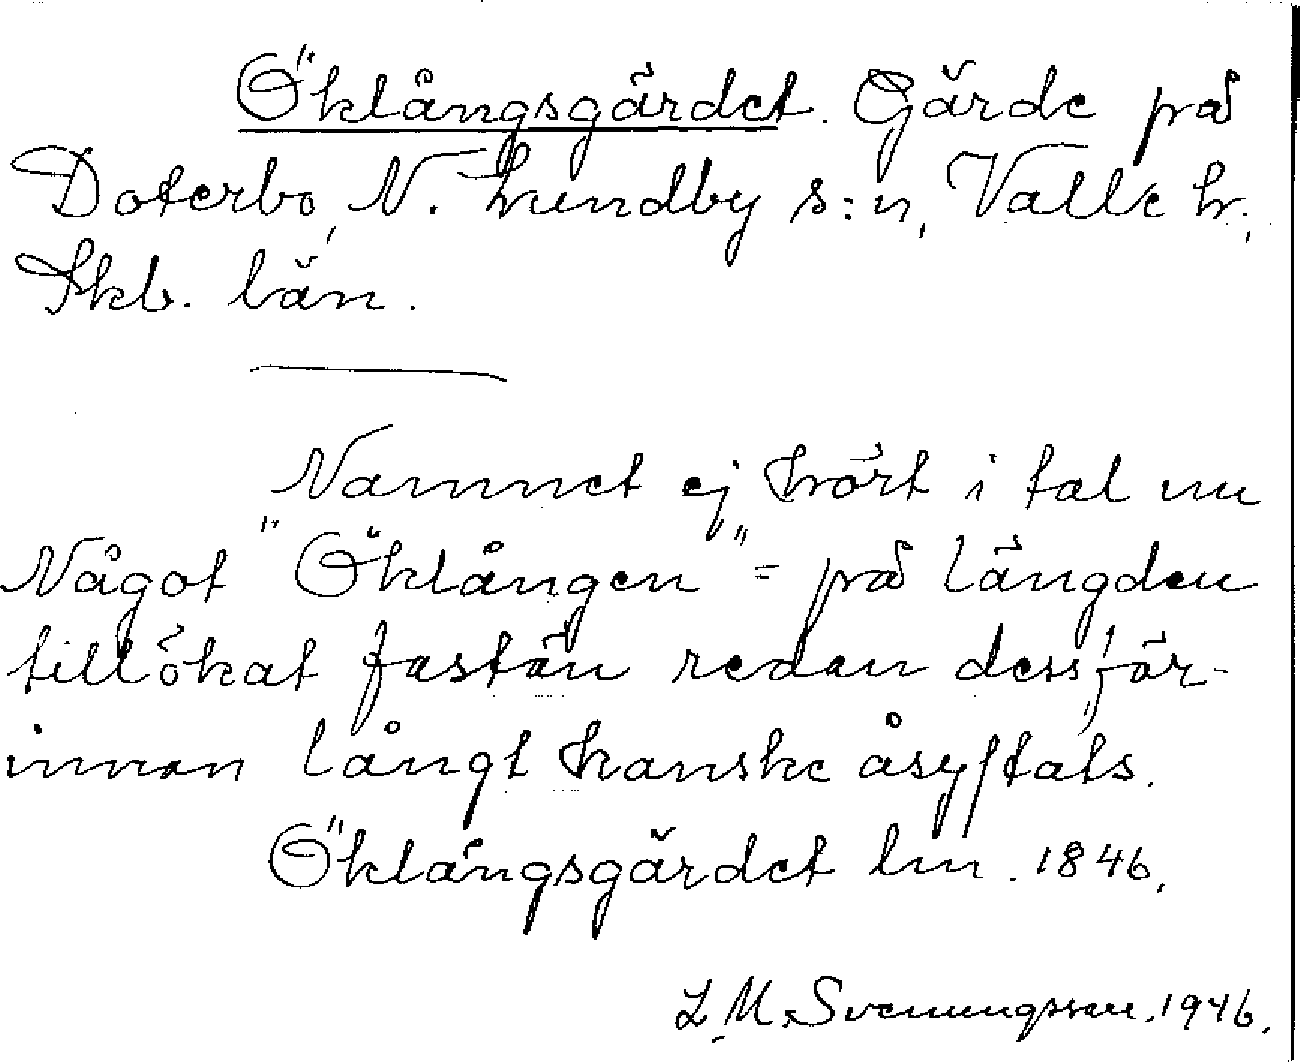 Öklångsgärdet. Gärde på
Doterbo, N. Lundby s:n, Valle h.,
Skb. län.
Namnet ej hört i tal nu
Något "Öklången" = på längden
tillökat fastän redan dessför-
innan långt kanske åsyftats.
Öklångsgärdet lm. 1846.
L. M. Svenungsson. 1946.